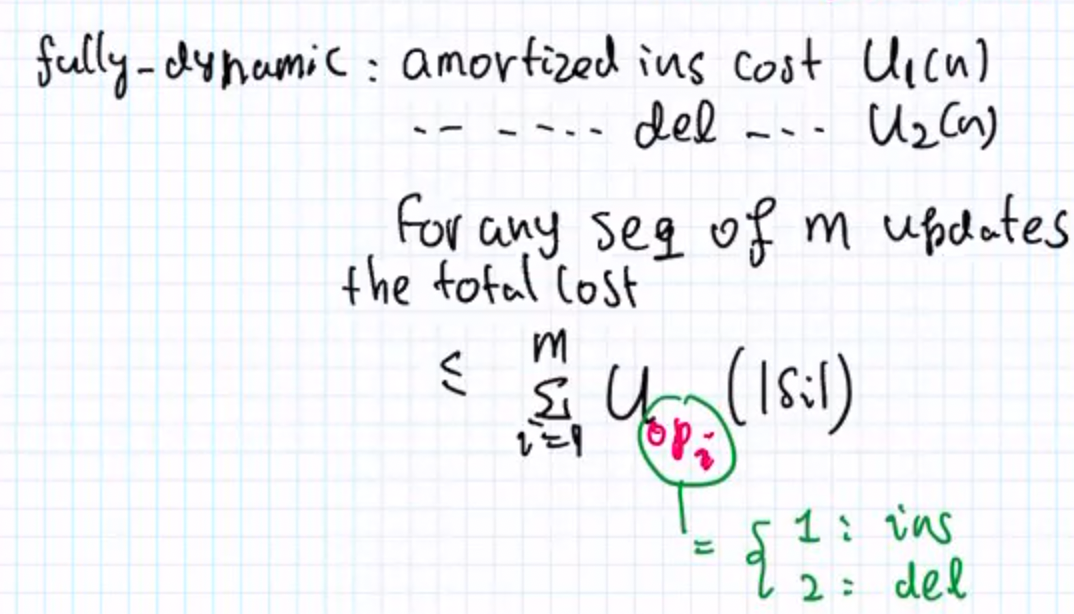 fully-dynamic: amortized ins cost U₁(n)
-- ---- del --- U₂(n)
For any seq of m updates
the total cost
≤ Σ_{i=1}^{m} U_{op_i} (|Si|)
= { 1: ins
2: del